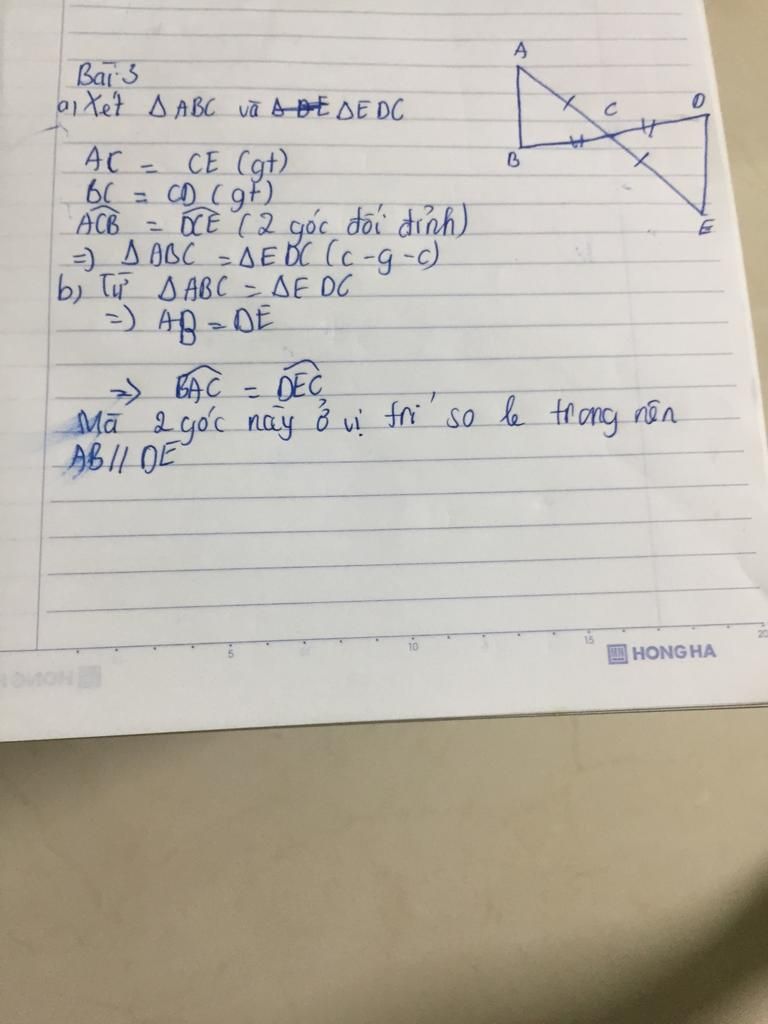 Bài 3
A
a) Xét ΔABC và ΔDE ΔEDC
C
D
B
AC = CE (gt)
BC = CD (gt)
ACB = DCE (2 góc đối đỉnh)
E
=> ΔABC = ΔEDC (c-g-c)
b) Từ ΔABC = ΔEDC
=> AB = DE
=> BAC = DEC
Mà 2 góc này ở vị trí so le trong nên
AB // DE
5 10 15 20
HONG HA